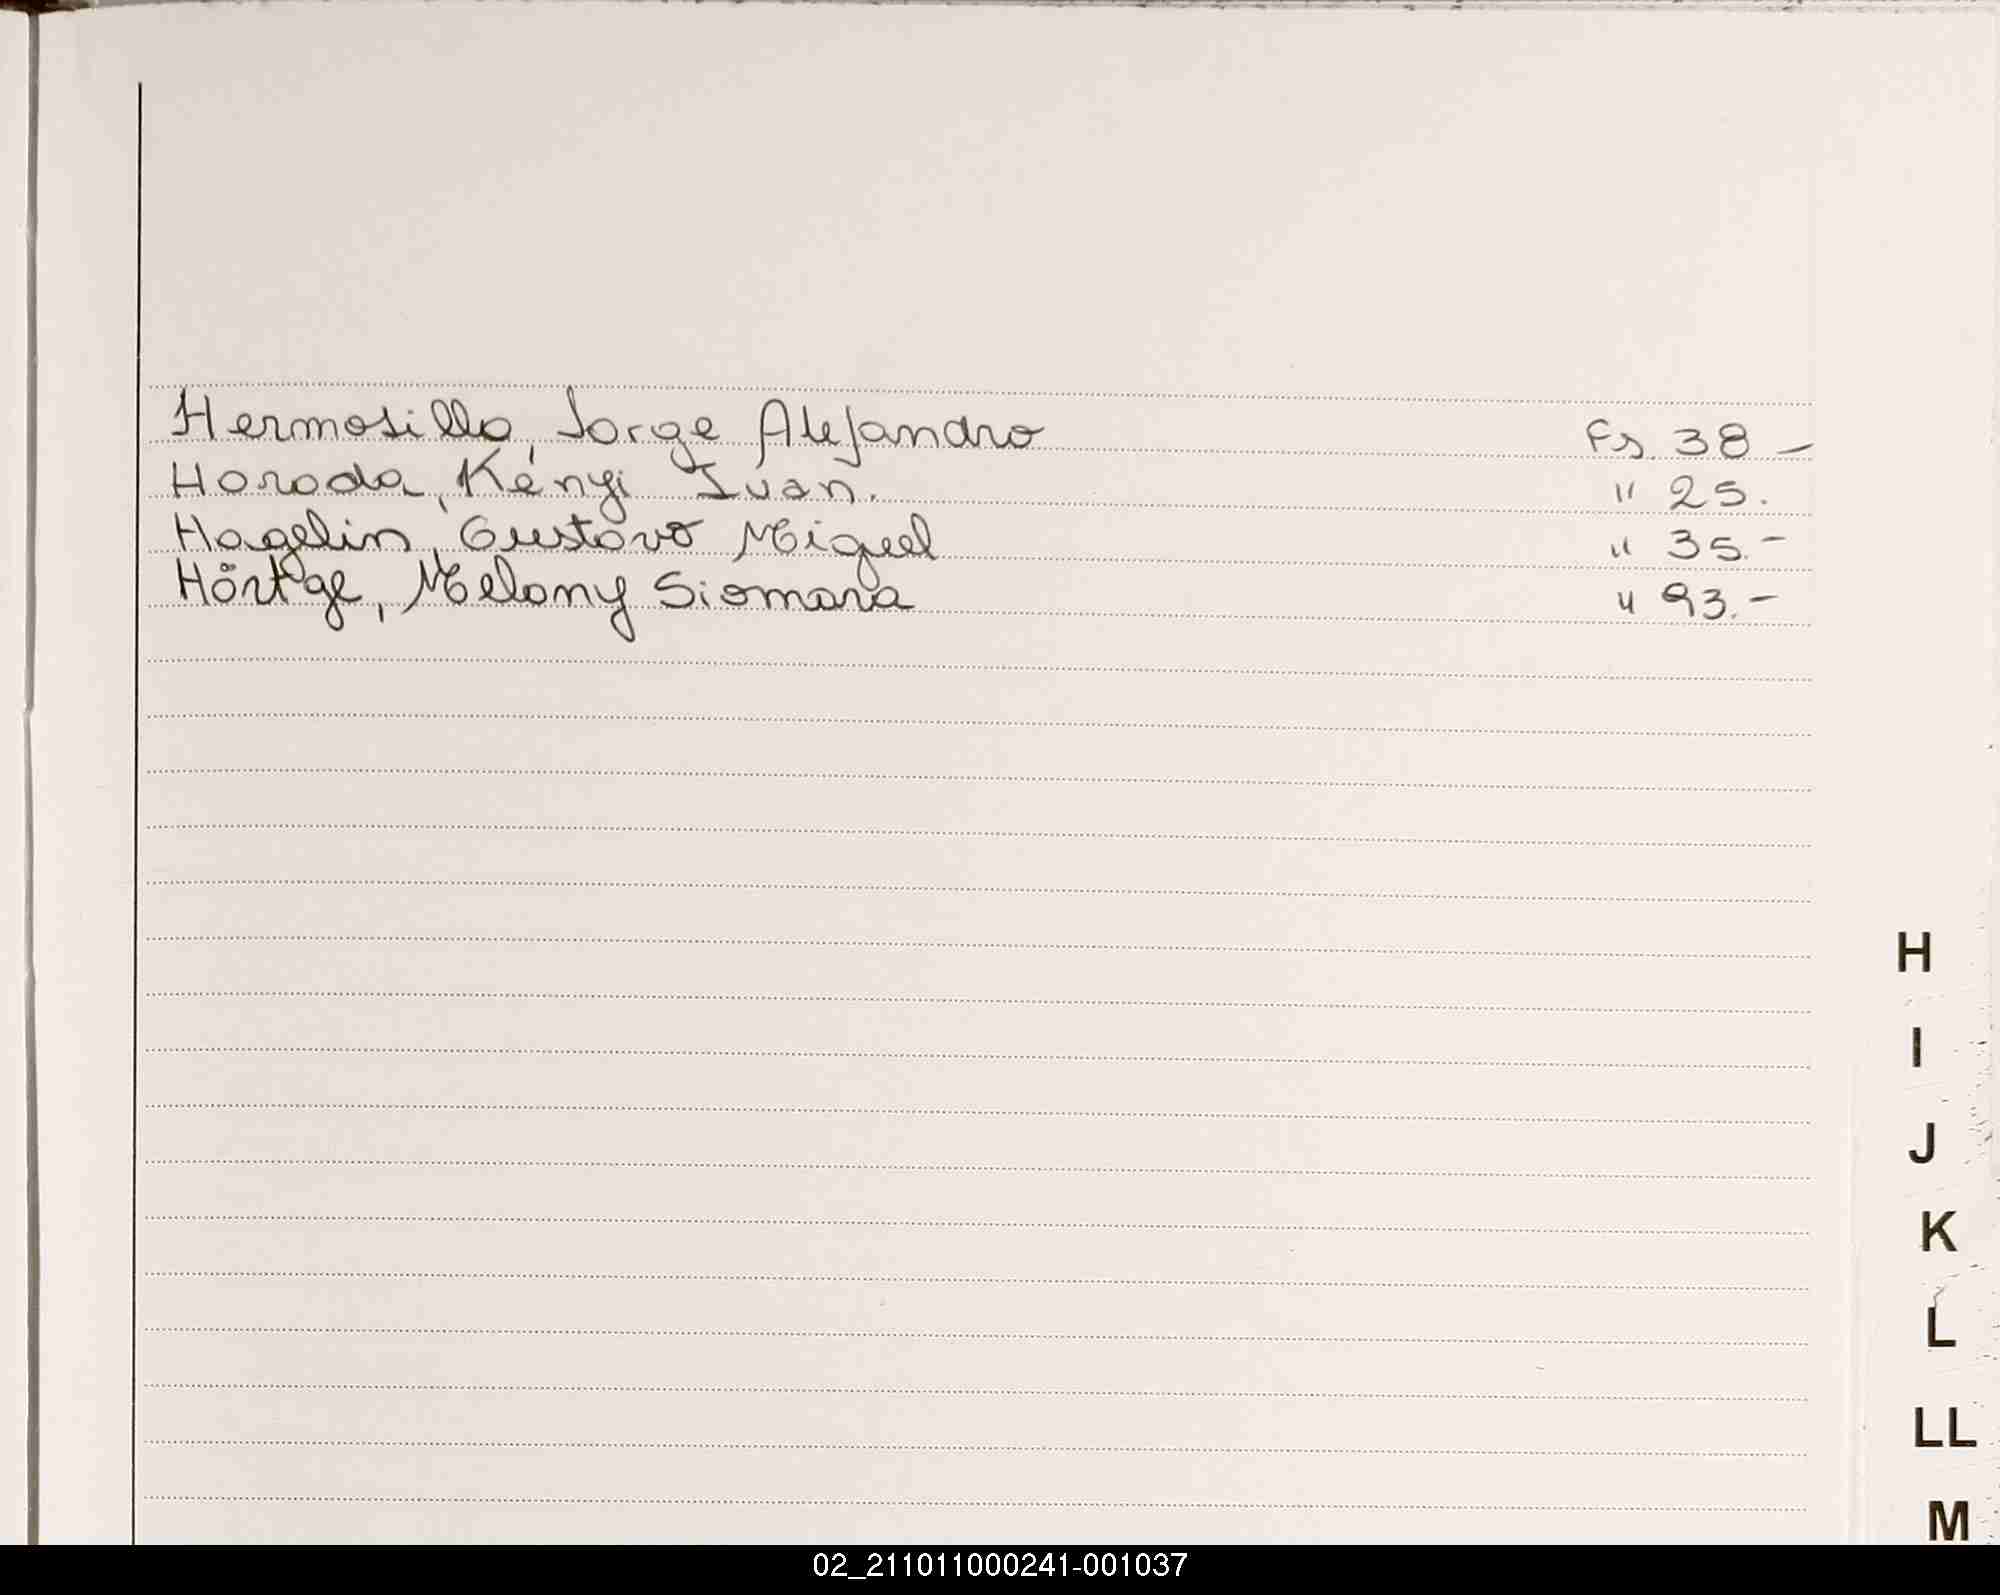 Hermosilla, Jorge Alejandro Fs. 38 -
Horoda, Kényi Ivan. " 25.
Hagelin, Gustavo Miguel " 35.-
Hörtge, Melany Siomara " 93.-
H
I
J
K
L
LL
M
02_211011000241-001037